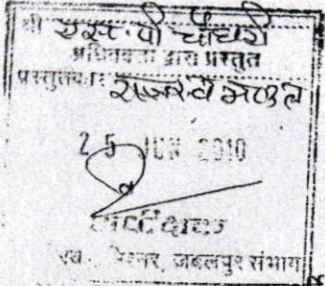 श्री एस० पी चौधरी
अधिवक्ता द्वारा प्रस्तुत
प्रस्तुतकार राजस्व मण्डल
25 JUN 2010
अधीक्षक
जबलपुर संभाग